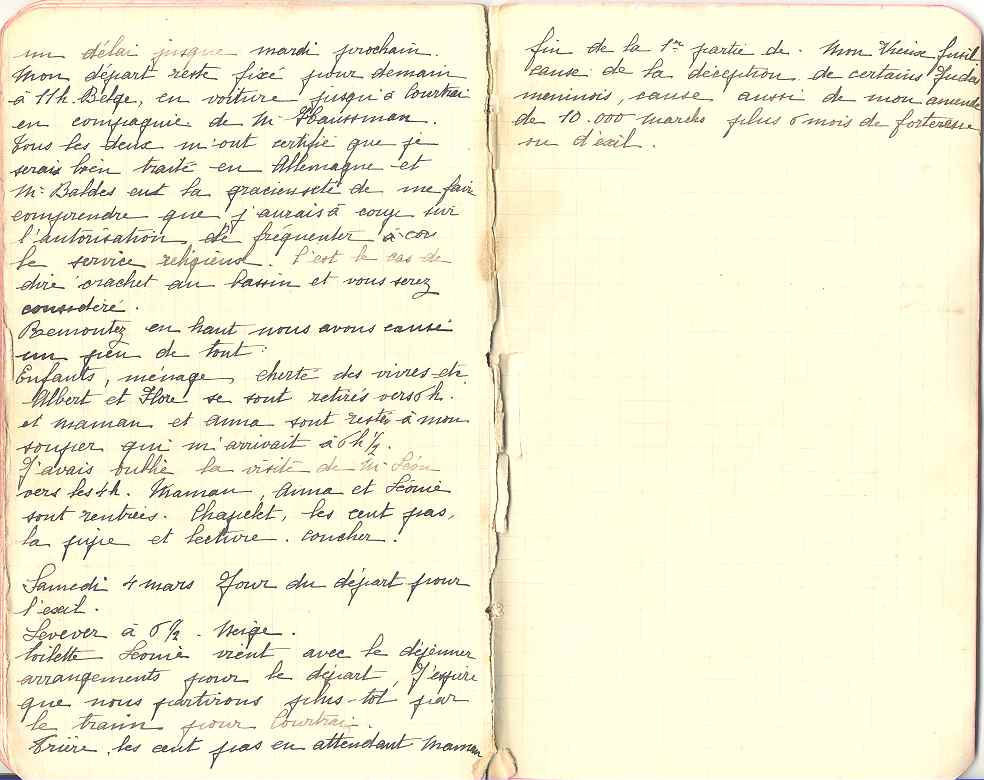 un délai jusque mardi prochain.
Mon départ reste fixé pour demain
à 11h. Belge, en voiture jusqu'à Courtrai
en compagnie de Mr Haussman.
Tous les deux m'ont certifié que je
serais bien traité en Allemagne et
Mr Baldes eut la gracieuseté de me faire
comprendre que j'aurais à coup sûr
l'autorisation de fréquenter à
le service religieux. C'est le cas de
dire crachet au bassin et vous serez
considéré.
Remontez en haut nous avons causé
un peu de tout :
Enfants, ménage, cherté des vivres etc.
Albert et Flore se sont retirés vers 6h.
et maman et Anna sont restés à mon
souper qui m'arrivait à 6h 1/2.
J'avais oublié la visite de Mr Léon
vers les 4h. Maman, Anna et Léonie
sont rentrées. Chapelet, les cent pas,
la pipe et lecture. Coucher.
Samedi 4 mars Jour du départ pour
l'exil.
Lever à 6 1/2. Neige.
Toilette Léonie vient avec le déjeuner
arrangements pour le départ, J'espère
que nous partirons plus tôt par
le train pour Courtrai.
Prière, les cent pas en attendant Maman
fin de la 1re partie de. Mon Vieux fusil
cause de la déception de certains Judas
meninois, cause aussi de mon amende
de 10.000 marks plus 6 mois de forteresse
ou d'exil.